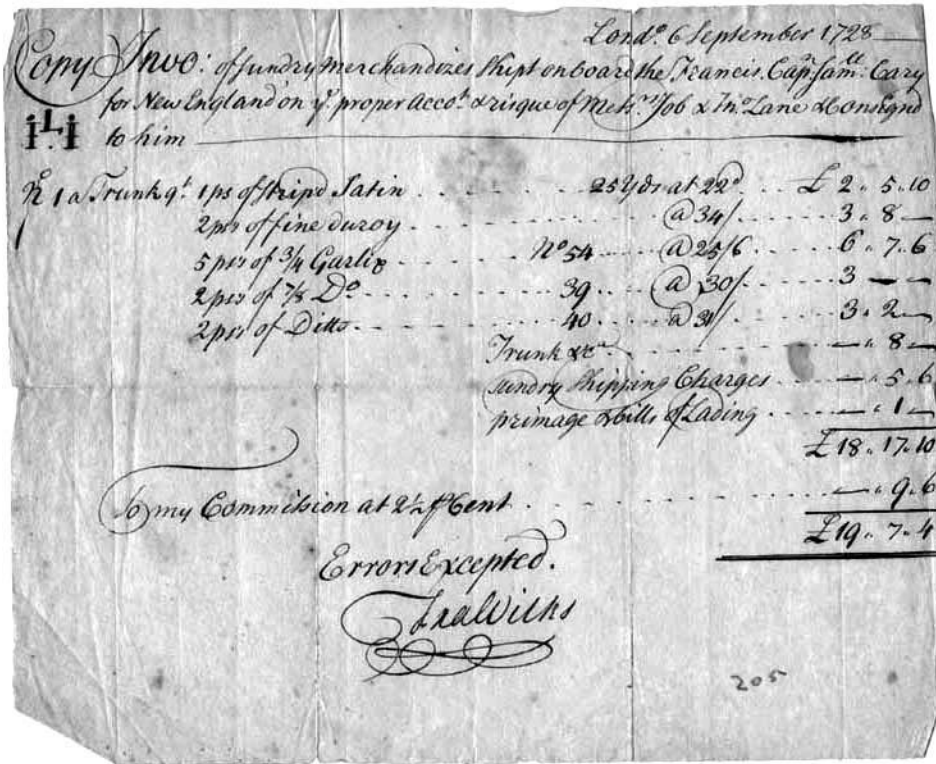 Lond.º 6 September 1728
Copy Invo: of sundry Merchandizes Shipt on board the Francis. Cap.ⁿ Sam.ˡˡ Cary
for New England on y.ᵉ proper Acco.ᵗ & risque of Mess.ʳˢ Job & Jn.º Lane & Consignd
I.L.I to him
Nº 1 a Trunk q.ᵗ 1 ps of stripd Satin 25 Yds at 22.ᵈ £ 2 " 5 " 10
2 pses of fine duroy @ 34/ 3 " 8 —
5 pses of 3/4 Garlix Nº 54 @ 25/6 6 " 7 " 6
2 pses of 7/8 D.º 39 @ 30/ 3 — —
2 pses of Ditto 40 @ 31/ 3 " 2 —
Trunk &c.ᵃ — " 8 —
sundry Shipping Charges — " 5 " 6
primage & bills of Lading — " 1 —
£ 18 " 17 " 10
To my Commission at 2½ ⅌ Cent — " 9 " 6
£ 19 " 7 " 4
Errors Excepted.
Fra Wilks
205